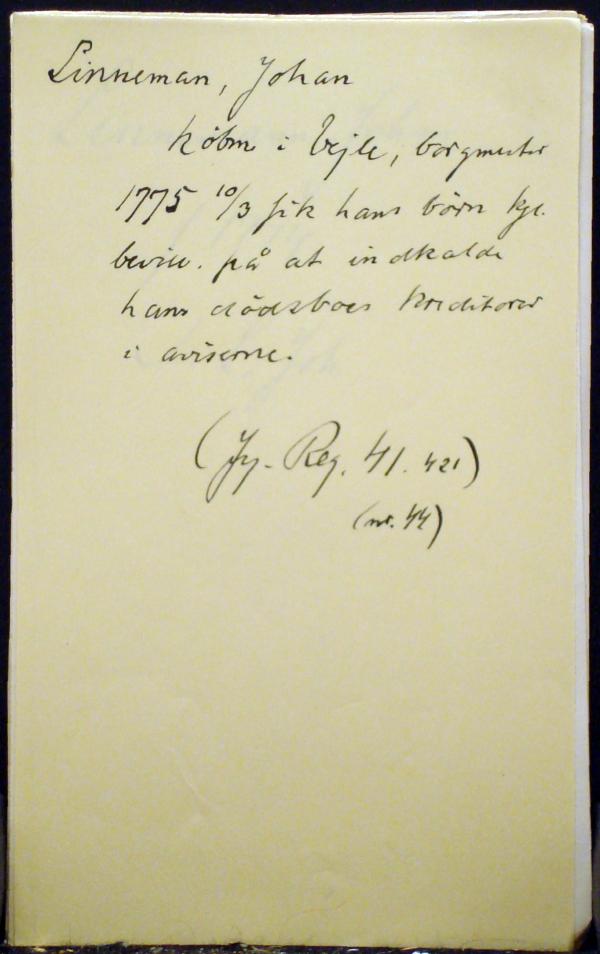 Linneman, Johan
købm i Vejle, borgmester
1775 10/3 fik hans børn kgl.
bevill. på at indkalde
hans dødsboes kreditorer
i aviserne.
(Jy. Reg. 41. 421)
(nr. 44)